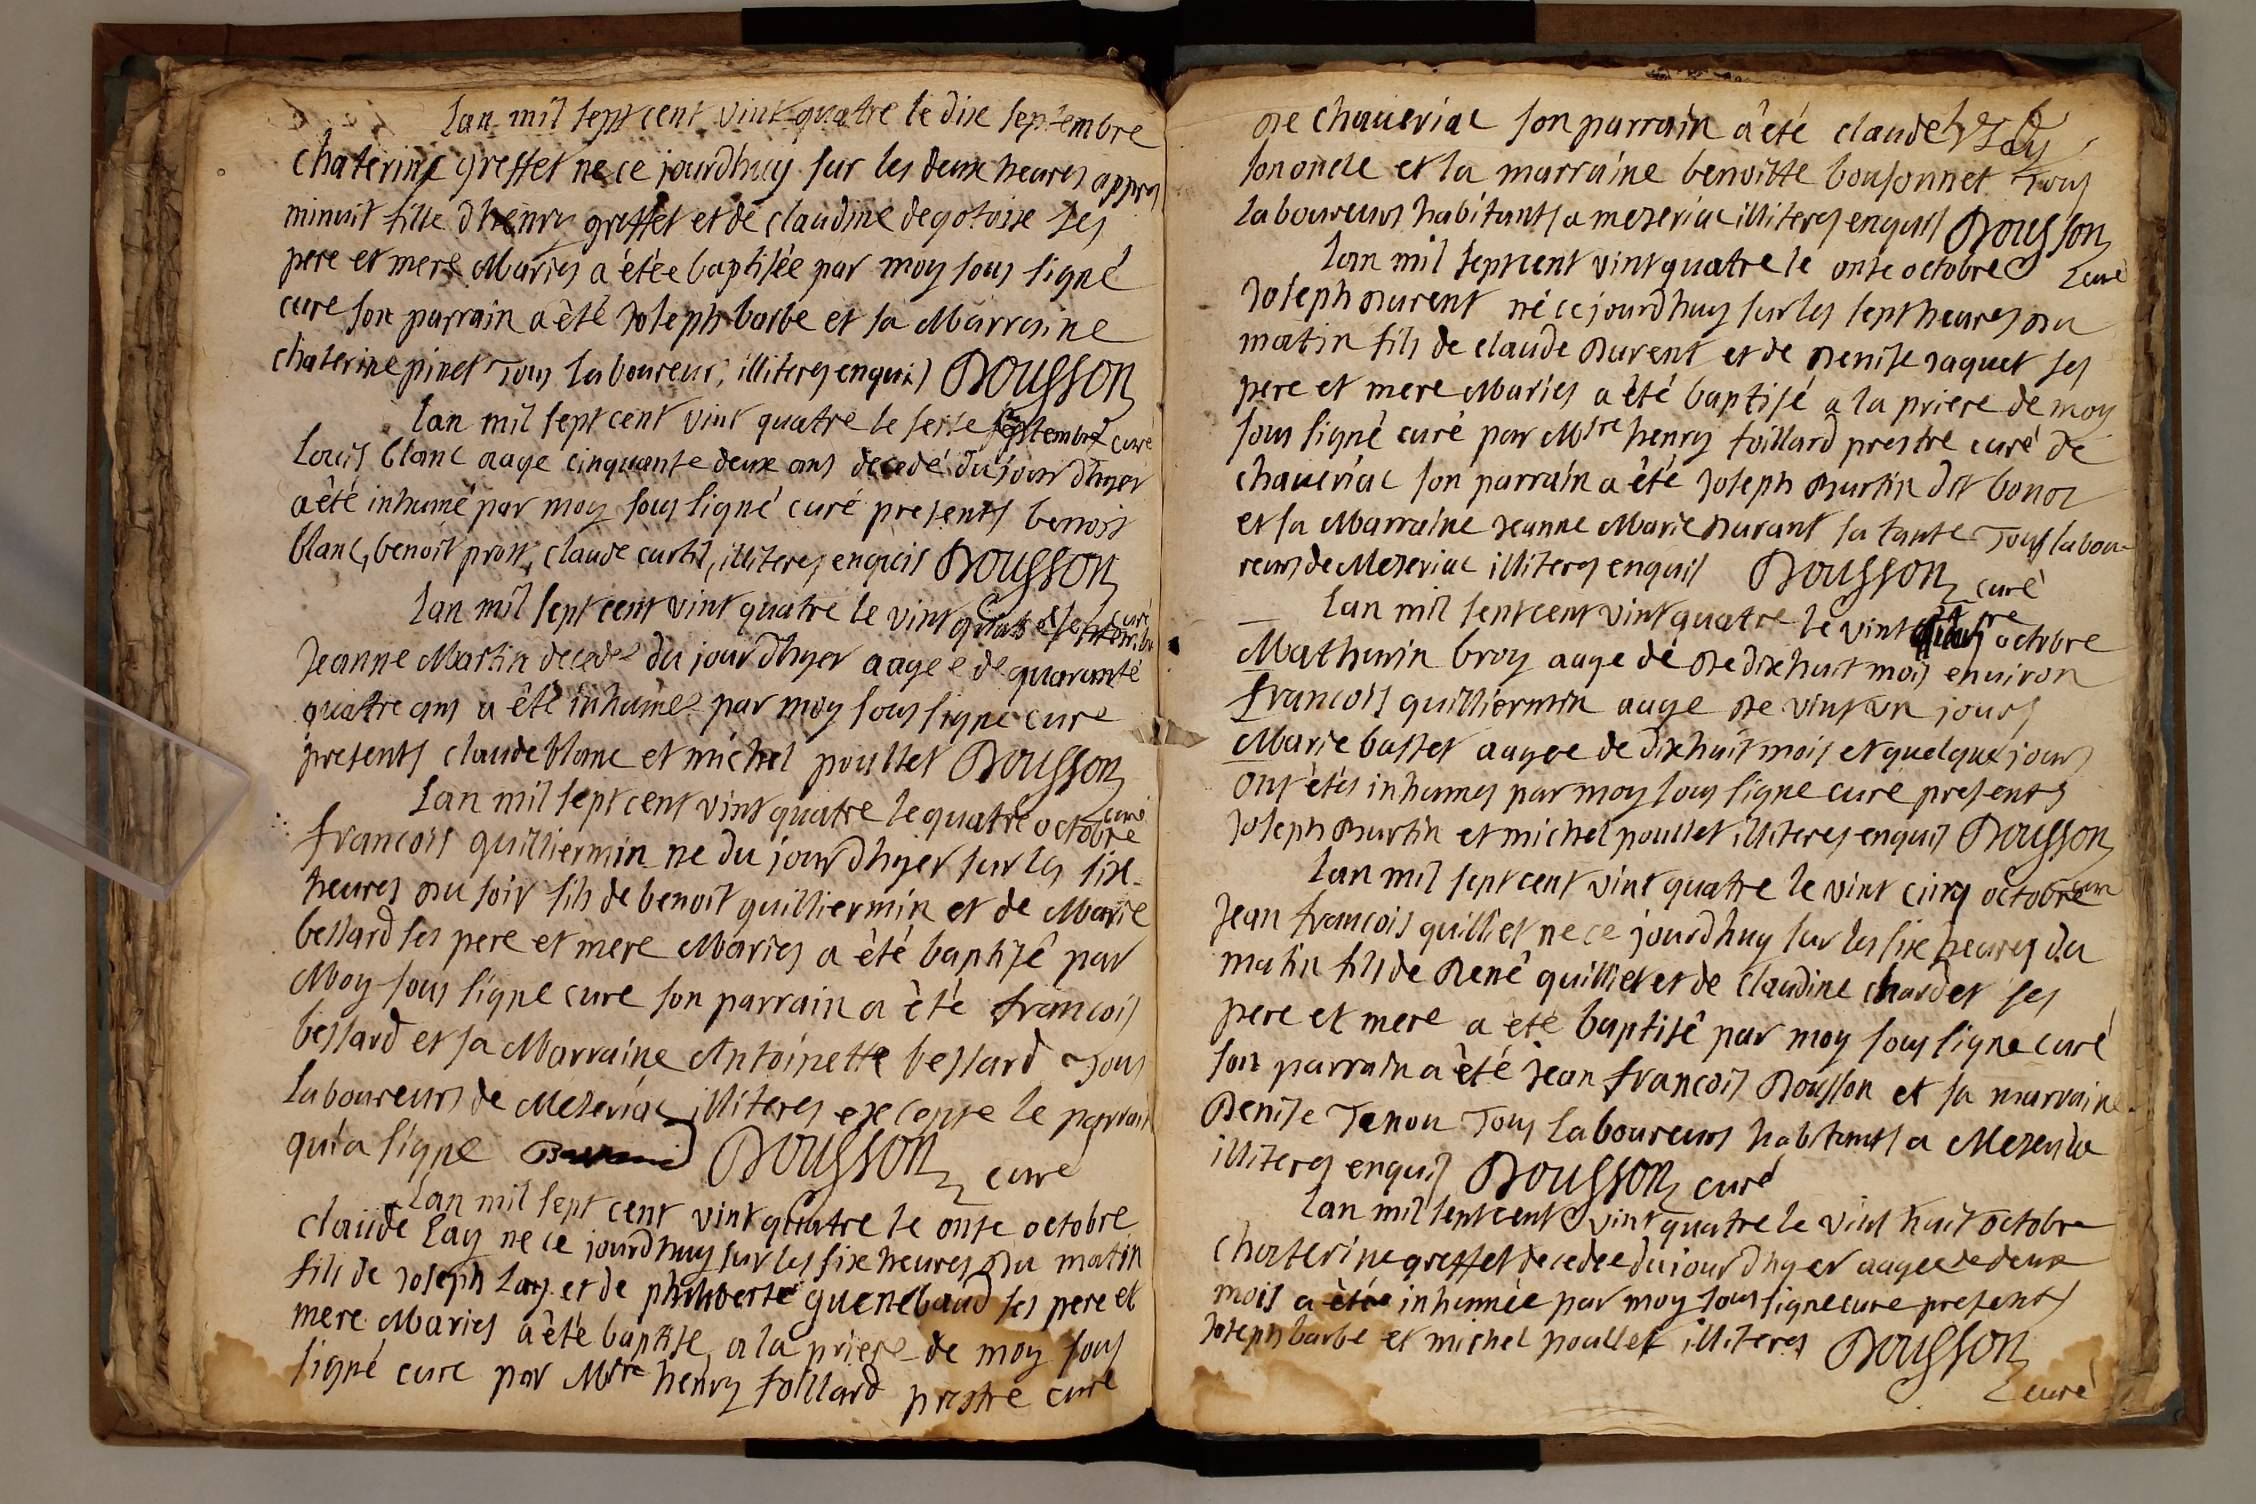 Lan mil sept cent vint quatre le dix septembre
chaterine greffet ne ce jourdhuy sur les deux heures appres
minuit fille dhenry greffet et de claudine degoloisse ses
pere et mere Maries a étée baptisée par moy sous signé
cure son parrain a èté Joseph barbe et sa Marraine
chaterine pinet Tous laboureur, illiteres enquis DOUSSON
curé
Lan mil sept cent vint quatre le sesse septembre
Louis blanc aage cinquante deux ans decedé du jour dhyer
a êté inhumé par moy sous signé curé presents benoist
blanc, benoit prost, claude curtil, illiteres enquis DOUSSON
curé
Lan mil sept cent vint quatre le vint quatre septembre
Jeanne Martin decedee du jour dhyer aagee de quarante
quatre ans a êté inhumee par moy sous signé cure
presents claude blanc et michel poullet DOUSSON
curé
Lan mil sept cent vint quatre le quatre octobre
francois quilliermin ne du jour dhyer sur les six
heures du soir fils de benoit quilliermin et de Marie
bessard ses pere et mere Maries a èté baptisê par
Moy sous signe cure son parrain a èté francois
bessard et sa Marraine Antoinette bessard Tous
laboureurs de Meseriac illiteres excepte le parrain
qui a signe DOUSSON curé
Lan mil sept cent vint quatre le onse octobre
claude Lay ne ce jourdhuy sur les six heures du matin
fils de Joseph Lay et de philiberte guenebaud ses pere et
mere Maries a êté baptise a la priere de moy sous
signé cure par Mtre henry foillard prestre curé
de chaueriac son parrain a êté claude Lay
son oncle et la marraine benoitte bousonnet Tous
laboureurs habitants a meseriac illiteres enquis DOUSSON
curé
Lan mil sept cent vint quatre le onse octobre
Joseph durent né ce jourdhuy sur les sept heures du
matin fils de claude durent et de denise jaquet ses
pere et mere Maries a êté baptisé a la priere de moy
sous signé curé par Mtre henry foillard prestre curé de
chaueriac son parrain a êté Joseph Burtin dit bonoz
et sa Marraine Jeanne Marie durant sa tante Tous labou-
reurs de Meseriac illiteres enquis DOUSSON curé
Lan mil sept cent vint quatre le vint octobre
Mathurin broy aage de de dix huit mois enuiron
francois quilliermin aage de vint un jours
Marie basset aagee de dix huit mois et quelque jours
ont êtés inhumes par moy sous signe curé presents
Joseph Burtin et michel poullet illiteres enquis DOUSSON
cure
Lan mil sept cent vint quatre le vint cinq octobre
Jean francois quilliet ne ce jourdhuy sur les six heures du
matin fils de René quilliet et de claudine chardet ses
pere et mere a èté baptisê par moy sous signe curé
son parrain a èté Jean francois Dousson et sa marraine
Denise Tenon Tous laboureurs habitants a Meseria
illiteres enquis DOUSSON curé
Lan mil sept cent vint quatre le vint huit octobre
chaterine greffet decedee du jour dhyer aagee de deux
mois a étée inhumée par moy sous signe cure presents
Joseph barbe et michel poullet illiteres DOUSSON
curé